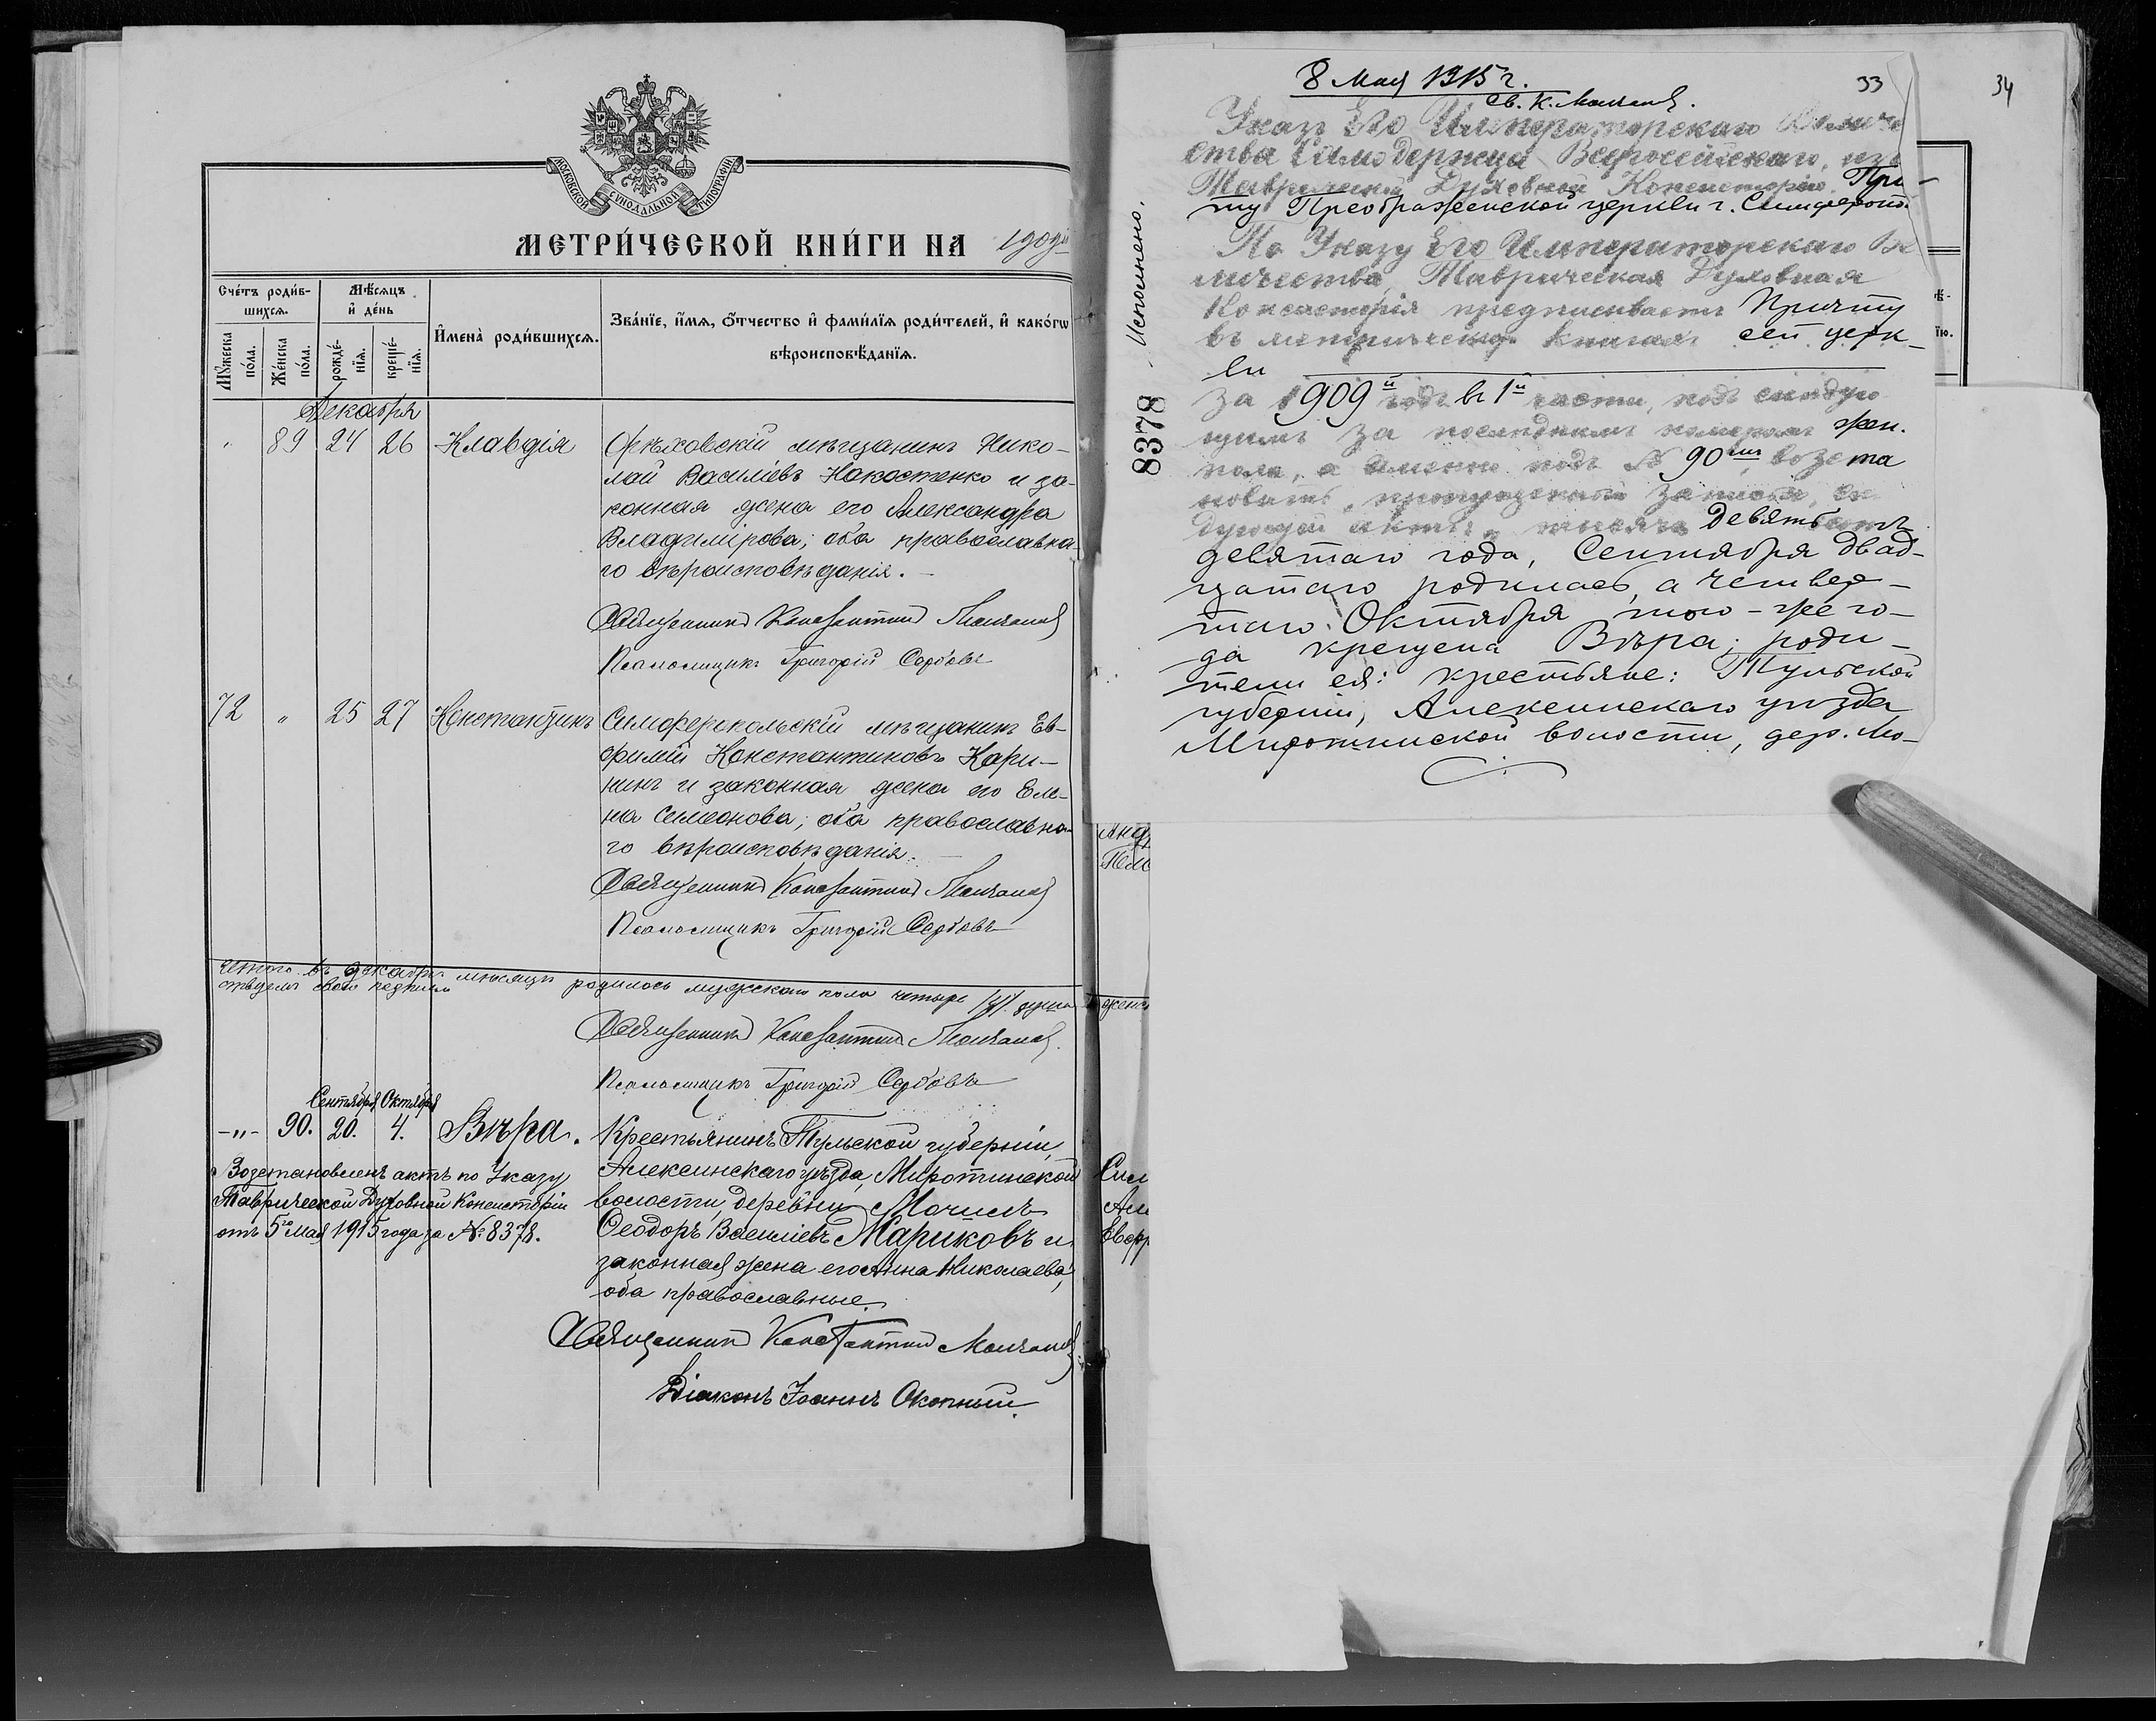 МОСКОВСКОЙ СѴНОДАЛЬНОЙ ТИПОГРАФІИ
МЕТРИ́ЧЕСКОЙ КНИ́ГИ НА 1909й
Сче́тъ роди́в-
шихсѧ.
Мѣ́сяцъ
и҆ де́нь
И҆мена̀ роди́вшихсѧ.
Зва́нїе, и҆́мѧ, ѻ҆́тчество и҆ фами́лїѧ роди́телей, и҆ како́гѡ
вѣроисповѣ́данїѧ.
Мꙋ́жеска
по́ла.
Же́нска
по́ла.
рожде́-
нїѧ.
креще́-
нїѧ.
Декабря
" 89 24 26 Клавдія
Орѣховскій мѣщанинъ Нико-
лай Василіевъ Накостенко и за-
конная жена его Александра
Владимірова; оба православна-
го вѣроисповѣданія.
Священникъ Константинъ Молчановъ
Псаломщикъ Григорій Сербовъ
72 " 25 27 Константинъ
Симферопольскій мѣщанинъ Ев-
фимій Константиновъ Кари-
нинъ и законная жена его Еле-
на Семеонова; оба православна-
го вѣроисповѣданія.
Священникъ Константинъ Молчановъ
Псаломщикъ Григорій Сербовъ
въ декабрѣ мѣсяцѣ родилось мужскаго пола четыре /4/. душъ
Священникъ Константинъ Молчановъ
Псаломщикъ Григорій Сербовъ
Сентября Октября
-"- 90. 20. 4. Вѣра.
Крестьянинъ Тульской губерніи,
Алексинскаго уѣзда, Миротинской
волости, деревни Мочилъ
Ѳеодоръ Василіевъ Мариковъ и
законная жена его Анна Николаева,
оба православные.
Возстановленъ актъ по Указу
Таврической Духовной Консисторіи
отъ 5го Мая 1915 года за № 8378.
Священникъ Константинъ Молчановъ
Діаконъ Іоаннъ Окопный.
8 Мая 1915 г.
св. К. Молчановъ.
33
34
Указъ Его Императорскаго Величе
ства Самодержца Всероссійскаго, изъ
Таврической Духовной Консисторіи При-
ту Преображенской церкви г. Симферопо-
По Указу Его Императорскаго Ве
личества, Таврическая Духовная
Консисторія предписываетъ Причту
въ метрической книгѣ сей церк-
ви
За 1909й годъ въ 1й части, подъ слѣдую
щимъ за послѣднимъ номеромъ жен.
пола, а именно подъ № 90мъ, возста
новить пропущенный записью, слѣ
дующій актъ: тысяча девятьсотъ
девятаго года, Сентября двад-
цатаго родилась, а четвер-
таго Октября того-же го-
да крещена Вѣра; роди-
тели ея: крестьяне: Тульской
губерніи, Алексинскаго уѣзда
Миротинской волости, дер. Мо-
Исполнено.
8378